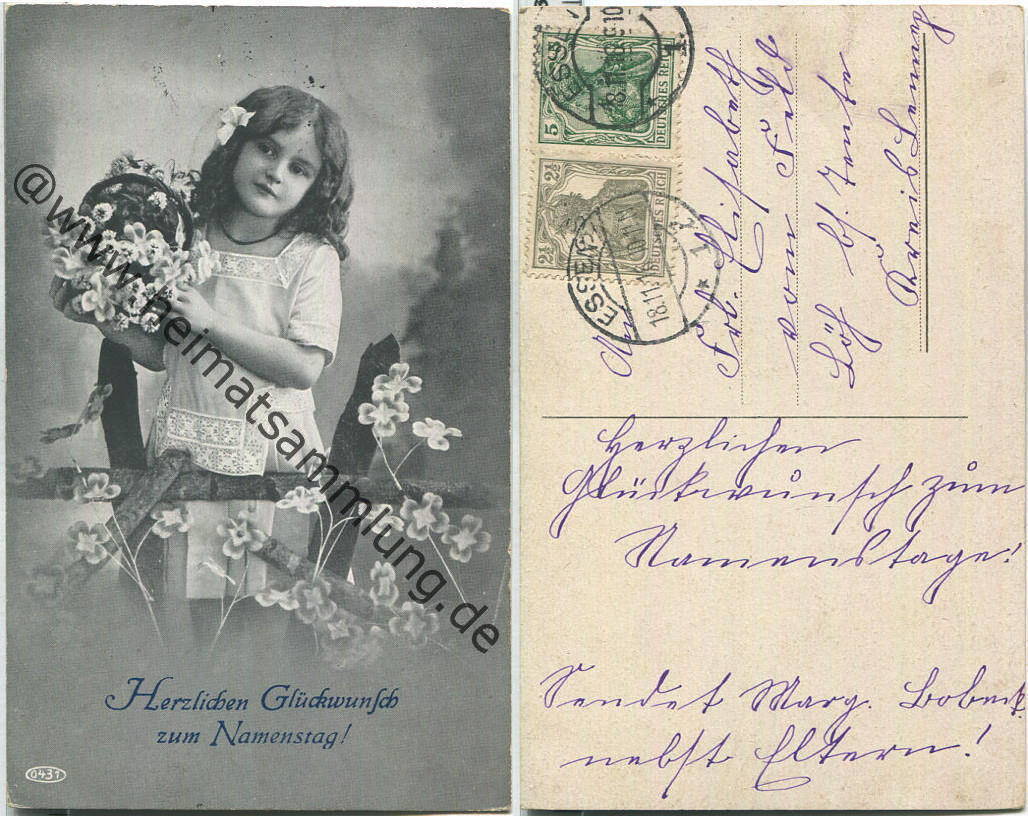 @www.heimatsammlung.de
Herzlichen Glückwunsch
zum Namenstag!
0431
5 DEUTSCHES REICH
2½ 2½ DEUTSCHES REICH
ESSEN
18.11.
An
Frl. Elisabeth
vom Feld
Löh b/.
Kreis Lennep
Herzlichen
Glückwunsch zum
Namenstage!
Sendet Marg.
nebst Eltern!